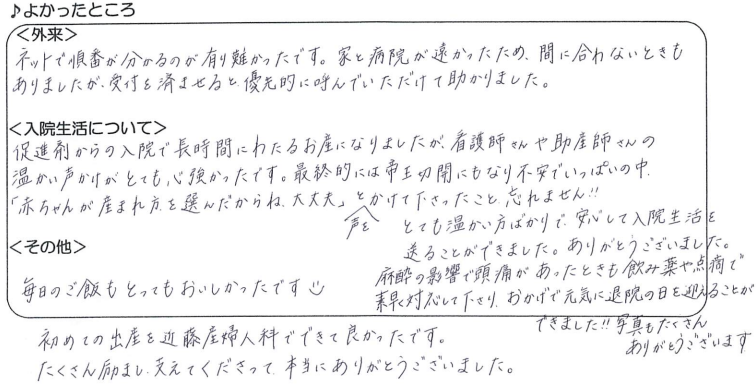 ♪よかったところ
＜外来＞
ネットで順番が分かるのが有り難かったです。家と病院が遠かったため、間に合わないときも
ありましたが、受付を済ませると、優先的に呼んでいただけて助かりました。
＜入院生活について＞
促進剤からの入院で長時間にわたるお産になりましたが、看護師さんや助産師さんの
温かい声かけがとても心強かったです。最終的には帝王切開にもなり不安でいっぱいの中、
「赤ちゃんが産まれ方を選んだからね、大丈夫」と声をかけて下さったこと、忘れません!!
とても温かい方ばかりで、安心して入院生活を
送ることができました。ありがとうございました。
麻酔の影響で頭痛があったときも飲み薬や点滴で
素早く対応して下さり、おかげで元気に退院の日を迎えることが
できました!!写真もたくさん
ありがとうございます
＜その他＞
毎日のご飯もとってもおいしかったです
初めての出産を近藤産婦人科でできて良かったです。
たくさん励まし、支えてくださって、本当にありがとうございました。